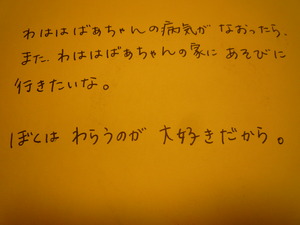 わははばあちゃんの病気が なおったら、
また、わははばあちゃんの家に あそびに
行きたいな。
ぼくは わらうのが 大好きだから。